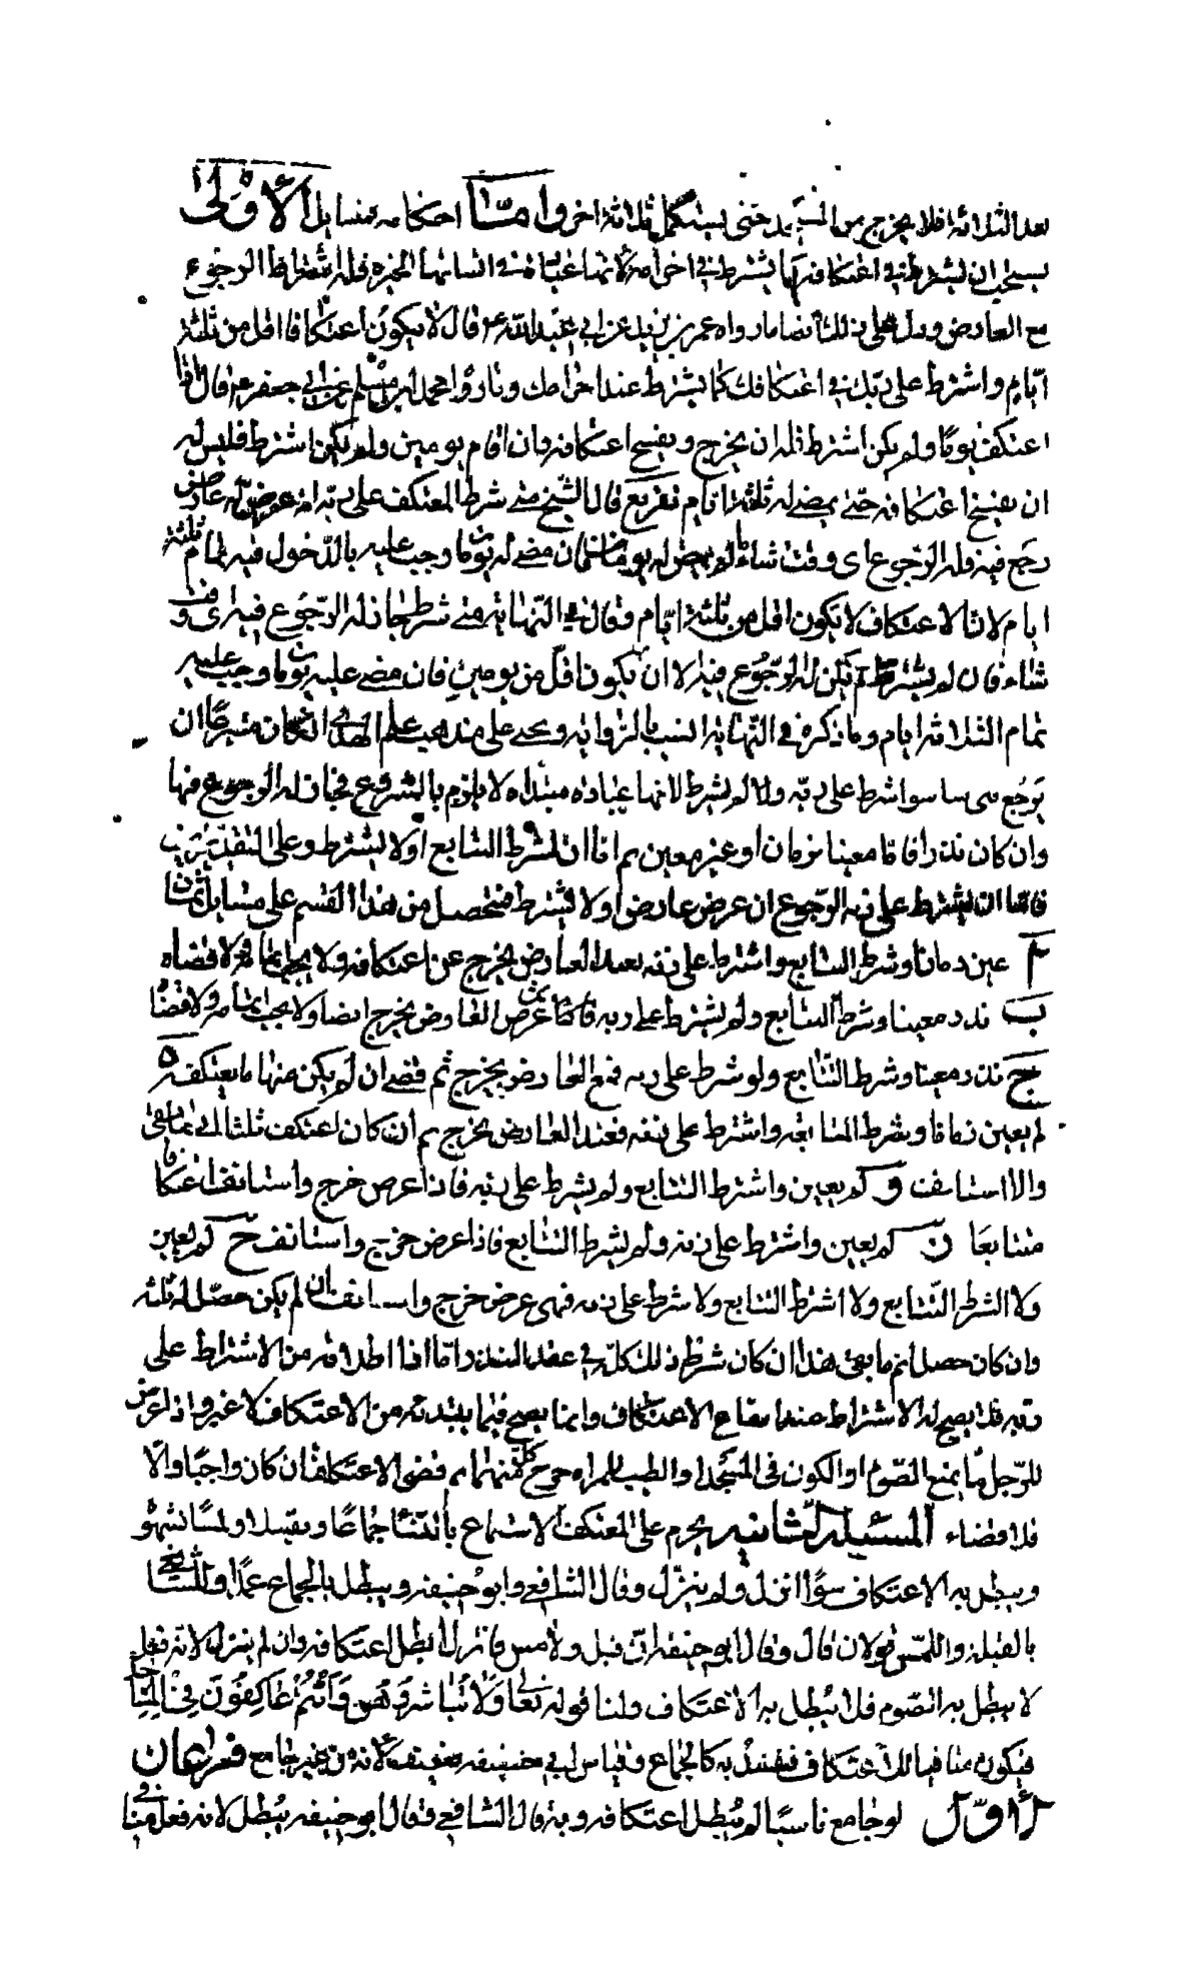 بعد الثلاثة فلا يخرج من المسجد حتى يستكمل ثلاثة اخر واما احكامه فمسايل الأولى
يستحب ان يشترط في اعتكافه كما يشترط في احرامه لانها عبادة في انشائها الخيرة فله اشتراط الرجوع
مع العارض ويدل على ذلك ايضا ما رواه عمر بن يزيد عن ابي عبد الله ع قال لا يكون اعتكافا اقل من ثلثة
ايام واشترط على ربك في اعتكافك كما تشترط عند احرامك وما رواه محمد بن مسلم عن ابي جعفر ع قال اذا
اعتكف يوما ولم يكن اشترط فله ان يخرج ويفسخ اعتكافه وان اقام يومين ولم يكن اشترط فليس له
ان يفسخ اعتكافه حتى يمضي له ثلثة ايام تفريع قال الشيخ متى شرط المعتكف على ربه انه عرض له عارض
رجع فيه فله الرجوع اي وقت شاء ما لم يمض له يومان فان مضى له يومان وجب عليه بالدخول فيه تمام ثلثة
ايام لان الاعتكاف لا يكون اقل من ثلثة ايام وقال في النهاية متى شرط جاز له الرجوع فيه اي وقت
شاء فان لم يشترط لم يكن له الرجوع فيه الا ان يكون اقل من يومين فان مضى عليه يومان وجب عليه
تمام الثلاثة ايام وما ذكره في النهاية انسب بالرواية ويجئ على مذهب علم الهدى ان كان متبرعا ان
يرجع متى شاء سواء اشترط على ربه ولا لم يشترط لانها عبادة مبتداه لا يلزم بالشروع فجاز له الرجوع فيها
وان كان نذرا فاما معينا بزمان او غير معين ثم اما ان يشترط التتابع او لا يشترط وعلى التقديرين
فاما ان يشترط على ربه الرجوع ان عرض عارض او لا يشترط فتحصل من هذا القسم على مسايل ثمان
ا عين زمانا وشرط التتابع واشترط على ربه فعند العارض يخرج عن اعتكافه ولا يجب اتمامه ولا قضاه
ب نذر معينا وشرط التتابع ولم يشترط على ربه فاذا عرض العارض يخرج ايضا ولا يجب اتمامه ولا قضا
ج نذر معينا وشرط التتابع ولو شرط على ربه فمع العارض يخرج ثم قضى ان لم يكن منها ما يعتكف ه
لم يعين زمانا وشرط المتابعة واشترط على ربه فعند العارض يخرج ثم ان كان اعتكف ثلثا اتى بما بقي
والا استانف و لم يعين واشترط التتابع ولم يشترط على ربه فاذا عرض خرج واستانف اعتكافا
متتابعا ز لم يعين واشترط على ربه ولم يشترط التتابع فاذا عرض خرج واستانف ح لم يعين
ولا اشترط التتابع ولا شرط على ربه فمتى عرض خرج واستانف ان لم يكن حصل له ثلثه
وان كان حصل اتم ما بقي هذا ان كان شرط ذلك كله في عقد النذر اما اذا اطلقه من الاشتراط على
ربه فلا يصح له الاشتراط عند ايقاع الاعتكاف وانما يصح فيما يبتدئه من الاعتكاف لا غير واذا عرض
للرجل ما يمنع الصوم او الكون في المسجد او الطيب للمراه خرج كل منهما ثم قضى الاعتكاف ان كان واجبا والا
فلا قضاء المسئلة الثانيه يحرم على المعتكف الاستمتاع بالنساء جماعا وتقبيلا ولمسا بشهوة
ويبطل به الاعتكاف سواء انزل او لم ينزل وقال الشافعي وابو حنيفه ويبطل بالجماع عمدا وللشافعي
بالقبله واللمس قولان قال وقال ابو حنيفه ان قبل ولامس فانزل ابطل اعتكافه وان لم ينزل لا لانه فعل
لا يبطل به الصوم فلا يبطل به الاعتكاف ولنا قوله تعالى وَلَا تُبَاشِرُوهُنَّ وَأَنْتُمْ عَاكِفُونَ فِي الْمَسَاجِدِ
فيكون منافيا للاعتكاف فيفسد به كالجماع وقياس ابي حنيفه ضعيف لانه من غير جامع فرعان
الأوّل لو جامع ناسيا لم يبطل اعتكافه وبه قال الشافعي وقال ابو حنيفه يبطل لانه فعل منافي